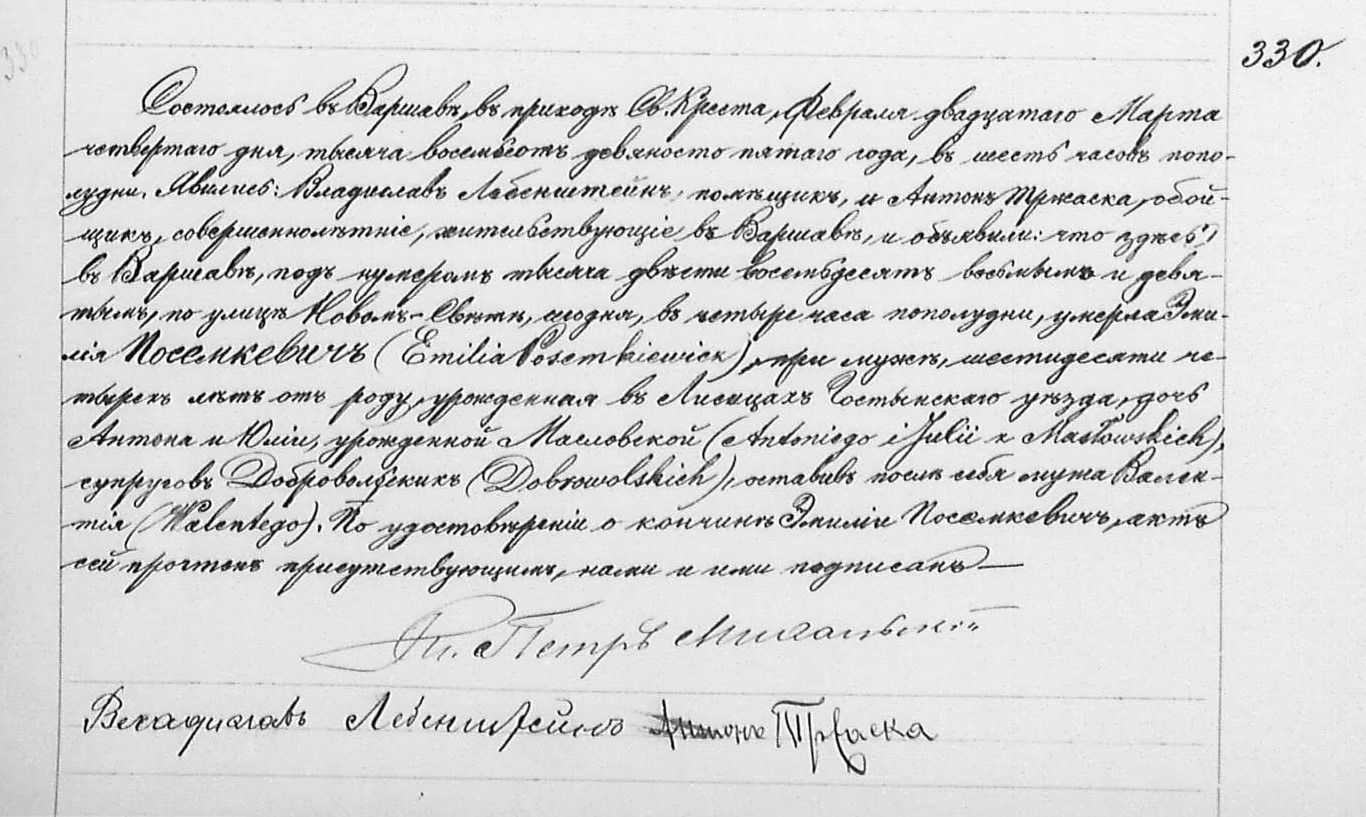 330
330.
Состоялось въ Варшавѣ, въ приходѣ Св. Креста, Февраля двадцатаго Марта
четвертаго дня, тысяча восемьсотъ девяносто пятаго года, въ шесть часовъ попо-
лудни. Явились: Владиславъ Лебенштейнъ, помѣщикъ, и Антонъ Тржаска, обой-
щикъ, совершеннолѣтніе, жительствующіе въ Варшавѣ, и объявили: что здѣсь
въ Варшавѣ, подъ нумеромъ тысяча двѣсти восемьдесятъ восьмымъ и девя-
тымъ, по улицѣ Новомъ-Свѣтѣ, сегодня, въ четыре часа пополудни, умерла Эми-
лія Посемкевичъ (Emilia Posemkiewicz), при мужѣ, шестидесяти че-
тырехъ лѣтъ отъ роду, урожденная въ Лисицахъ Гостынскаго уѣзда, дочь
Антона и Юліи, урожденной Масловской (Antoniego i Julii z Masłowskich),
супруговъ Добровольскихъ (Dobrowolskich), оставивъ послѣ себя мужа Вален-
тія (Walentego). По удостовѣреніи о кончинѣ Эмиліи Посемкевичъ, актъ
сей прочтенъ присутствующимъ, нами и ими подписанъ—
Кс. Петръ
Владиславъ Лебенштейнъ Антонъ Тржаска